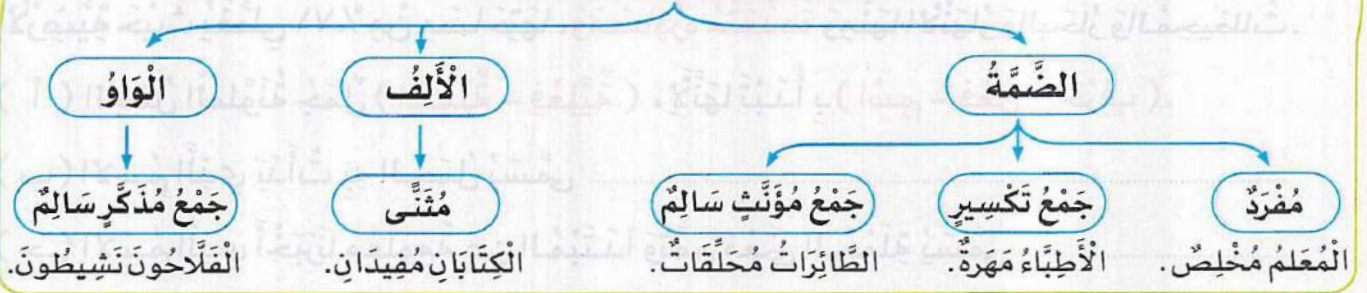 الضَّمَّةُ الْأَلِفُ الْوَاوُ
مُفْرَدٌ جَمْعُ تَكْسِيرٍ جَمْعُ مُؤَنَّثٍ سَالِمٌ مُثَنًّى جَمْعُ مُذَكَّرٍ سَالِمٌ
الْمُعَلمُ مُخْلِصٌ. الْأَطِبَّاءُ مَهَرةٌ. الطَّائِرَاتُ مُحَلِّقَاتٌ. الْكِتَابَانِ مُفِيدَانِ. الْفَلَّاحُونَ نَشِيطُونَ.